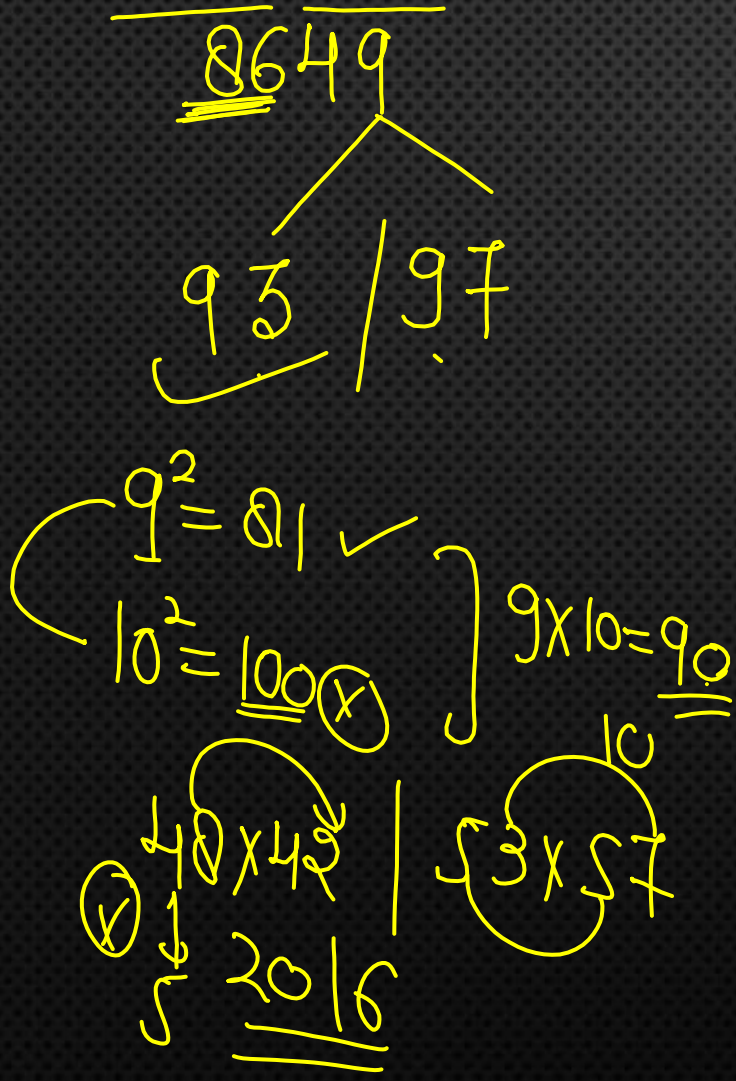 8649
93 / 97
9² = 81 ✓
10² = 100 ×
9×10=90
10
48×42 | 53×57
×
5
2016